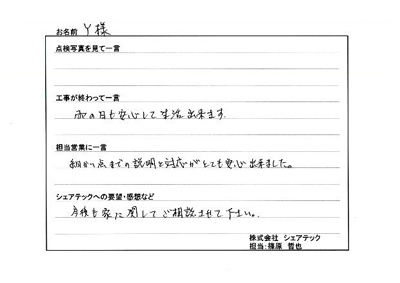 お名前 Y様
点検写真を見て一言
工事が終わって一言
雨の日も安心して生活出来ます.
担当営業に一言
細かい点までの説明と対応がとても安心出来ました。
シェアテックへの要望・感想など
今後も家に関してご相談させて下さい。
株式会社 シェアテック
担当:篠原 哲也